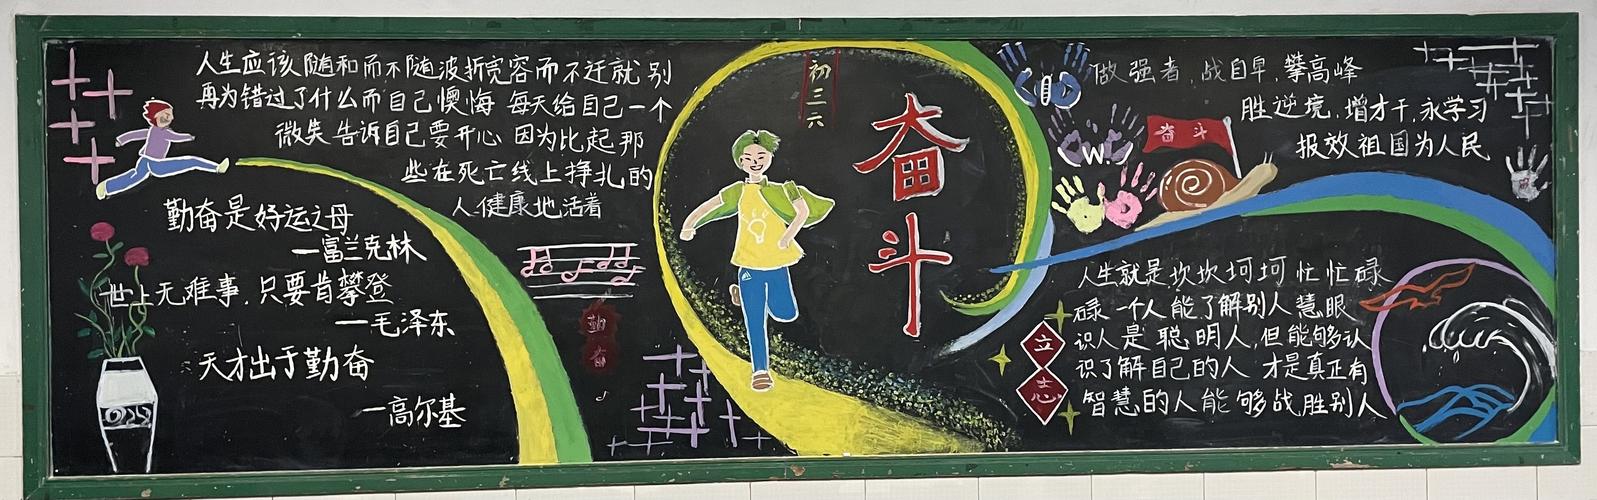 人生应该随和而不随波折宽容而不迁就别
再为错过了什么而自己懊悔 每天给自己一个
微笑告诉自己要开心 因为比起那
些在死亡线上挣扎的
人健康地活着
勤奋是好运之母
—富兰克林
世上无难事,只要肯攀登
—毛泽东
天才出于勤奋
—高尔基
勤
奋
初三六
奋斗
做强者,战自卑,攀高峰
胜逆境,增才干,永学习
报效祖国为人民
奋斗
W
人生就是坎坎坷坷忙忙碌
碌一个人能了解别人慧眼
识人是聪明人,但能够认
识了解自己的人 才是真正有
智慧的人能够战胜别人
立
志